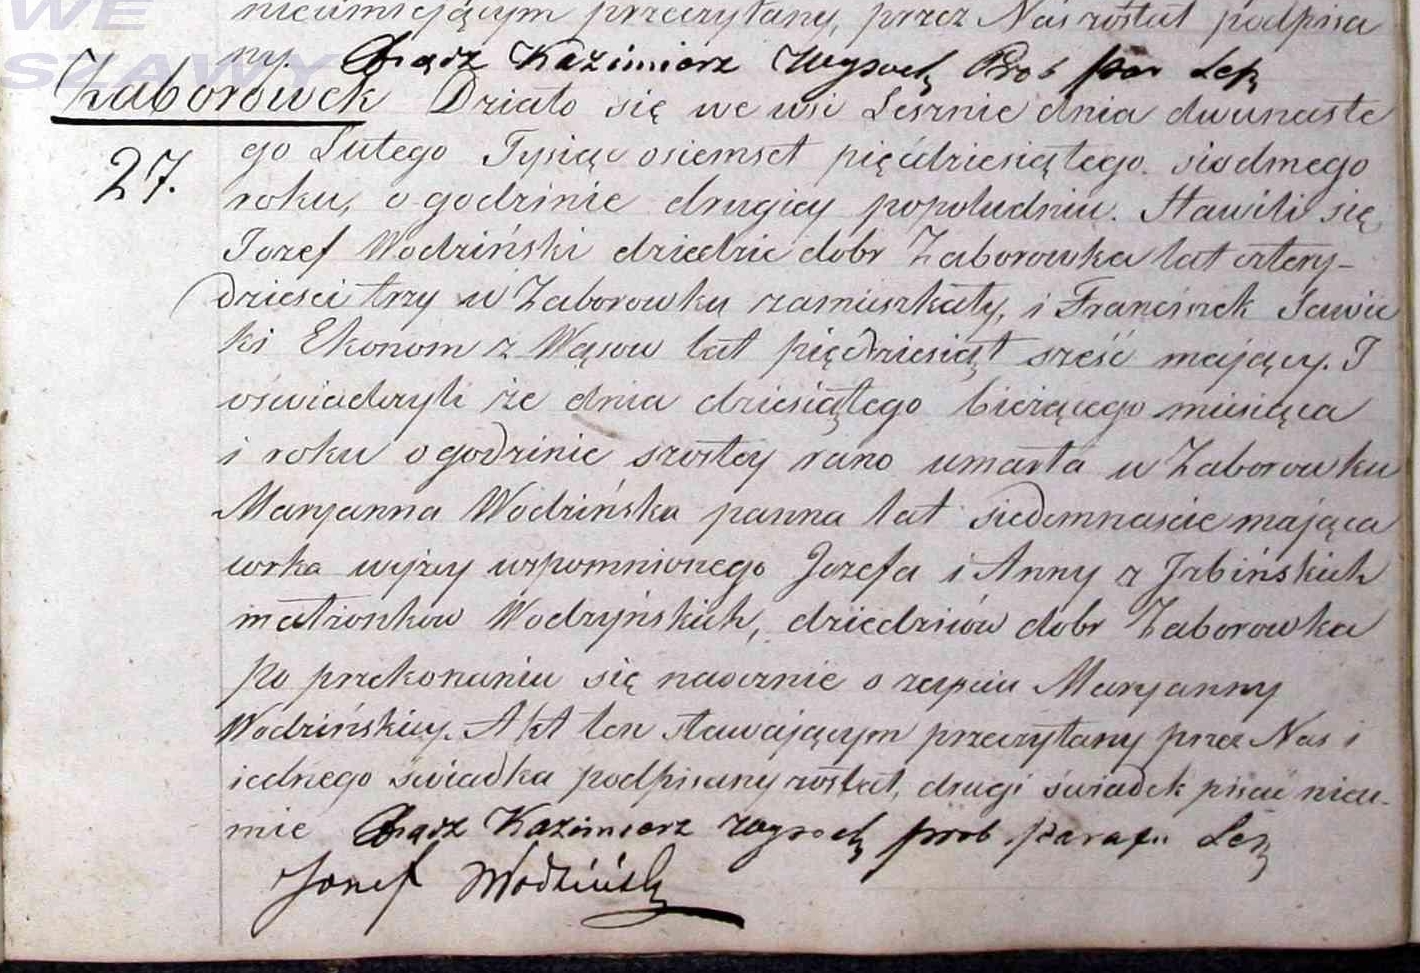 WE
SZAWY
nieumiejącym przeczytany, przez Nas został podpisa
ny. Xiądz Kazimierz Wysocki Prob par Lesz
Zaborowek Działo się we wsi Lesznie dnia dwunaste
27. go Lutego Tysiąc osiemset pięćdziesiątego siodmego
roku, o godzinie drugiey popołudniu. Stawili się
Jozef Wodziński dziedzic dobr Zaborowka lat cztery-
dziesci trzy w Zaborowku zamieszkały, i Franciszek Sawic
ki Ekonom z Wąsow lat pięcdziesiąt sześć mający. I
oświadczyli że dnia dziesiątego bieżącego miesiąca
i roku o godzinie szostey rano umarła w Zaborowku
Maryanna Wodzińska panna lat siedemnascie maiąca
corka wyżey wspomnionego Jozefa i Anny z Jrbińskich
małżonkow Wodzyńskich, dziedziców dobr Zaborowka
Po przekonaniu się naocznie o zeyściu Maryanny
Wodzińskiey. Akt ten stawającym przeczytany przez Nas i
iednego świadka podpisany został, drugi świadek pisać nieu-
mie Xiądz Kazimierz Wysocki prob. parafii Lesz
Jozef Wodziński